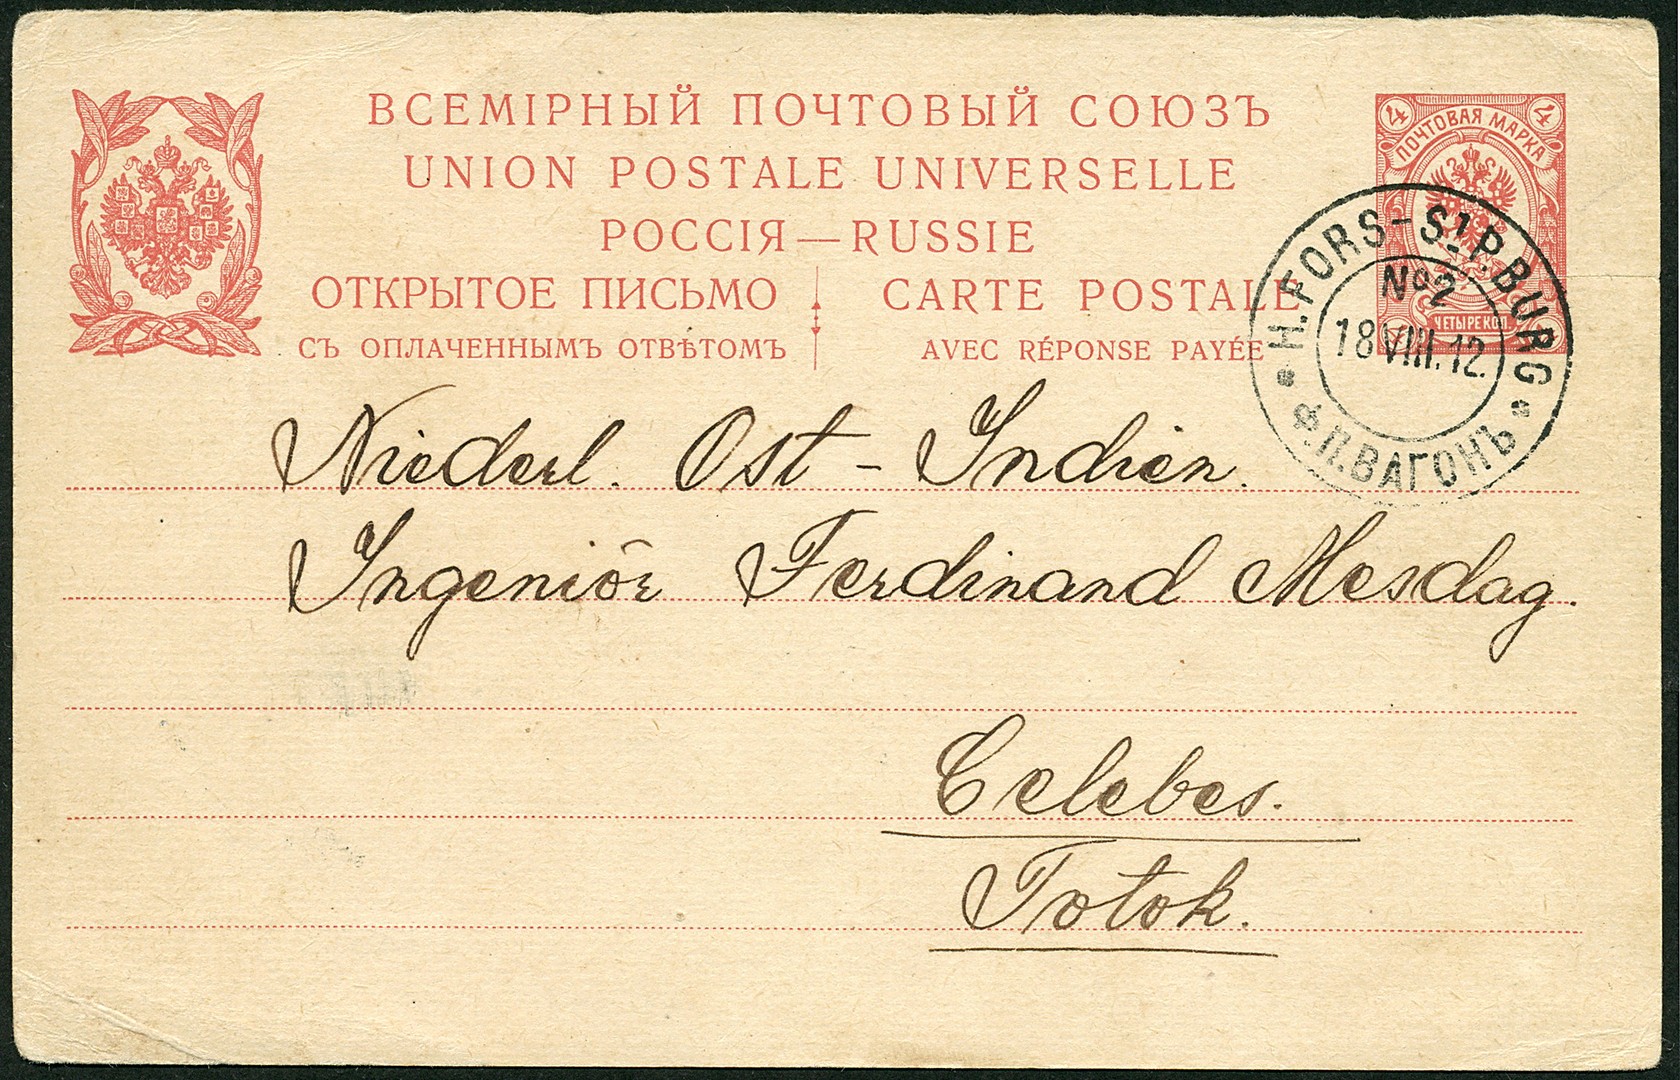 ВСЕМІРНЫЙ ПОЧТОВЫЙ СОЮЗЪ
UNION POSTALE UNIVERSELLE
РОССІЯ — RUSSIE
ОТКРЫТОЕ ПИСЬМО
СЪ ОПЛАЧЕННЫМЪ ОТВѢТОМЪ
CARTE POSTALE
AVEC RÉPONSE PAYÉE
4 4
ПОЧТОВАЯ МАРКА
ЧЕТЫРЕ КОП.
H.FORS-ST P.BURG
№2
18 VIII.12.
Ф.П.ВАГОНЪ
Niederl. Ost-Indien.
Ingeniör Ferdinand Mesdag.
Celebes.
Totok.